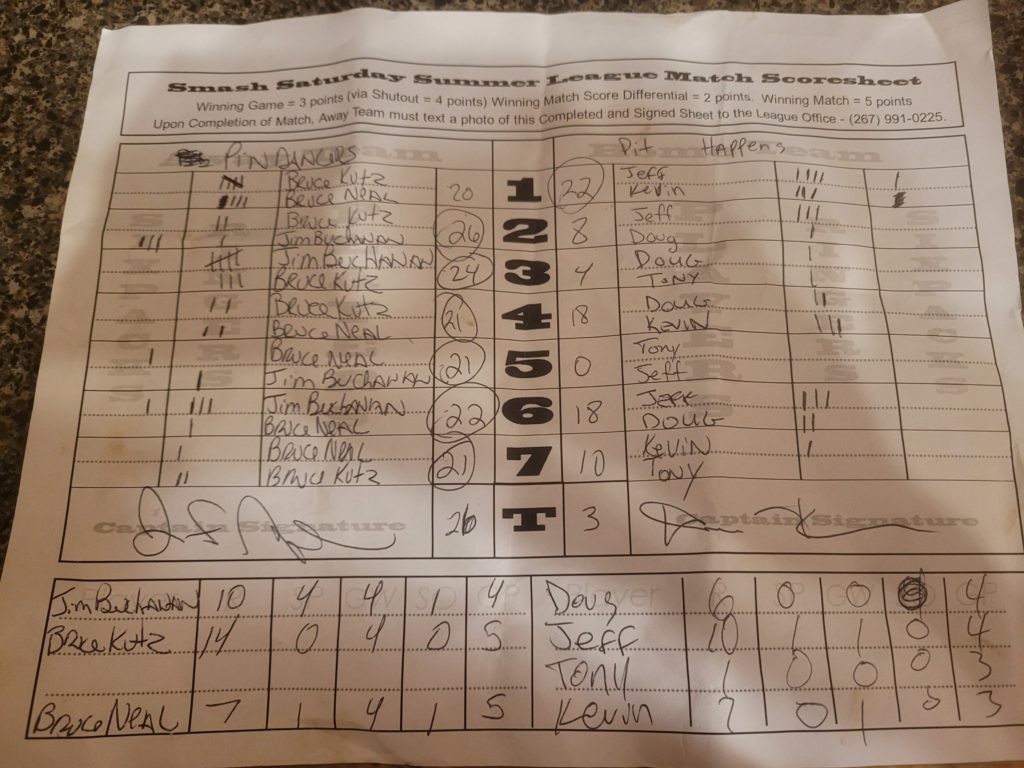 Smash Saturday Summer League Match Scoresheet
Winning Game = 3 points (via Shutout = 4 points) Winning Match Score Differential = 2 points. Winning Match = 5 points
Upon Completion of Match, Away Team must text a photo of this Completed and Signed Sheet to the League Office - (267) 991-0225.
PINDINGERS Pit Happens
Bruce Kutz 20 1 22 Jeff
Bruce Neal Kevin
Bruce Kutz 26 2 8 Jeff
Jim Buchanan Doug
Jim Buchanan 24 3 4 Doug
Bruce Kutz Tony
Bruce Kutz 21 4 18 Doug
Bruce Neal Kevin
Bruce Neal 21 5 0 Tony
Jim Buchanan Jeff
Jim Buchanan 22 6 18 Jeff
Bruce Neal Doug
Bruce Neal 21 7 10 Kevin
Bruce Kutz Tony
Captain Signature 26 T 3 Captain Signature
Jim Buchanan 10 4 4 1 4 Doug 6 0 0 4
Bruce Kutz 14 0 4 0 5 Jeff 10 1 1 0 4
Tony 1 0 0 0 3
Bruce Neal 7 1 4 1 5 Kevin 7 0 1 0 3